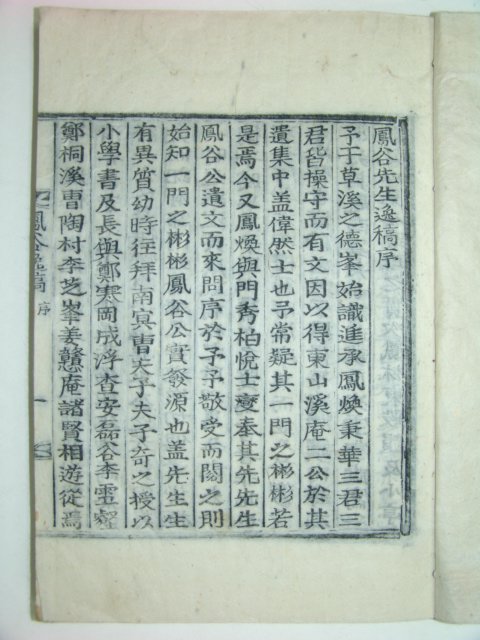 鳳谷先生逸稿序
予于草溪之德峯始識進承鳳煥秉華三君三
君皆操守而有文因以得東山溪庵二公於其
遺集中盖偉然士也予常疑其一門之彬彬若
是焉今又鳳煥與門秀柏悅士燮奉其先先生
鳳谷公遺文而來問序於予予敬受而閱之則
始知一門之彬彬鳳谷公實發源也盖先生生
有異質幼時往拜南冥曺夫子夫子奇之授以
小學書及長與鄭寒岡成浮查安磊谷李雪壑
鄭桐溪曺陶村李芝峯姜戇庵諸賢相遊從焉
鳳谷逸稿 序 一